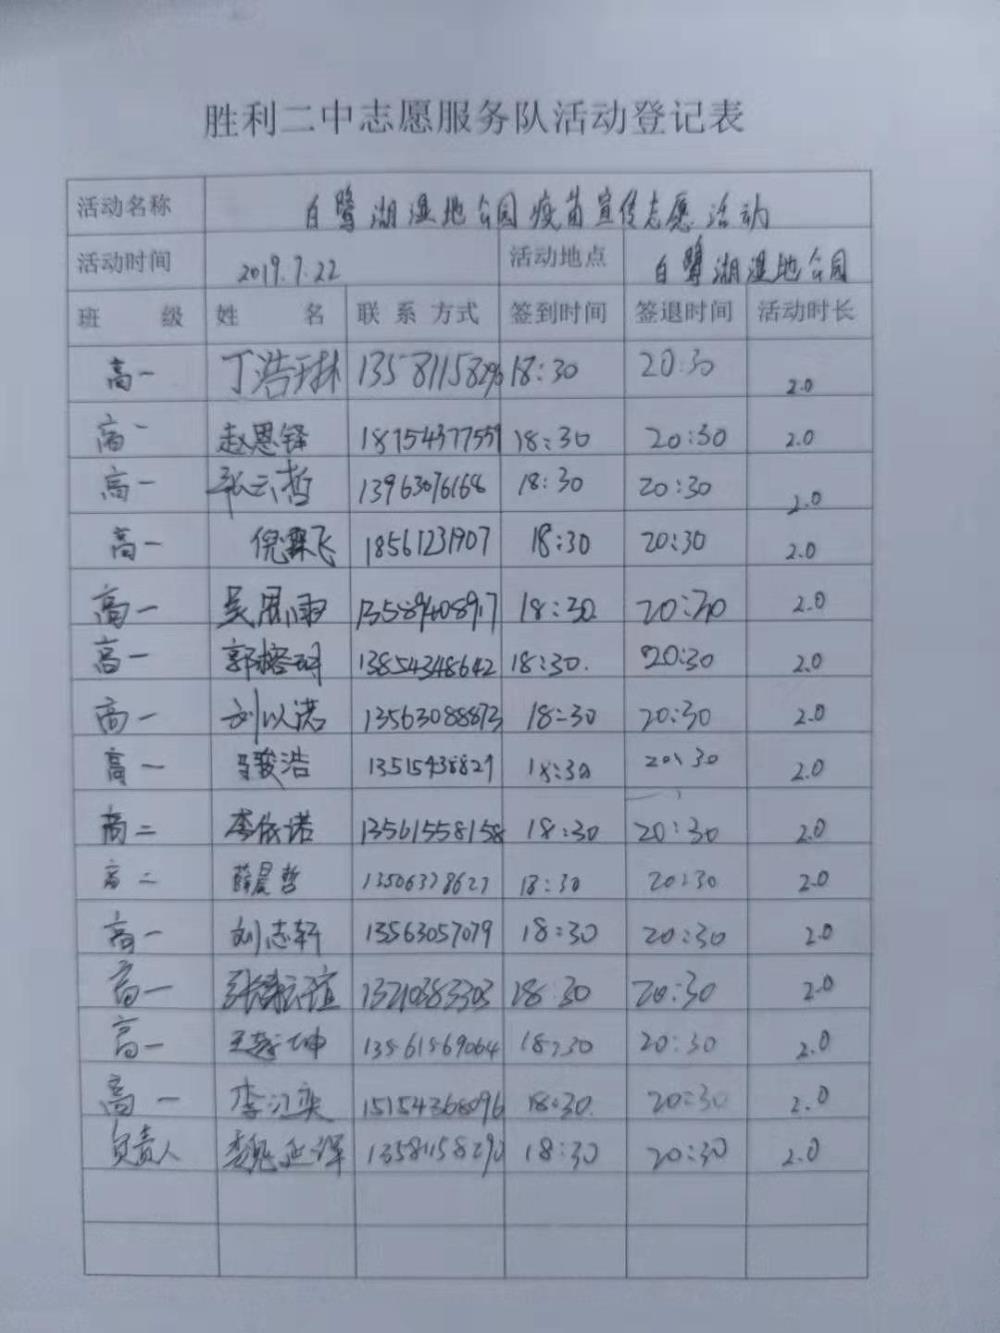 胜利二中志愿服务队活动登记表
活动名称 白鹭湖湿地公园疫苗宣传志愿活动
活动时间 2019.7.22 活动地点 白鹭湖湿地公园
班 级 姓 名 联系方式 签到时间 签退时间 活动时长
高一 丁浩琳 18:30 20:30 2.0
高一 赵恩铎 18754377559 18:30 20:30 2.0
高一 张云哲 13963076168 18:30 20:30 2.0
高一 倪霖飞 18561231907 18:30 20:30 2.0
高一 吴雨 18:30 20:30 2.0
高一 郭榕 13854348642 18:30. 20:30 2.0
高一 刘以诺 13563088873 18:30 20:30 2.0
高一 马骏浩 18:30 20:30 2.0
高二 李依诺 13561558158 18:30 20:30 2.0
高二 薛晨哲 18:30 20:30 2.0
高一 刘志轩 13563057079 18:30 20:30 2.0
高一 13210383303 18:30 20:30 2.0
高一 坤 18:30 20:30 2.0
高一 李江奕 15154368096 18:30. 20:30 2.0
负责人 魏延泽 18:30 20:30 2.0